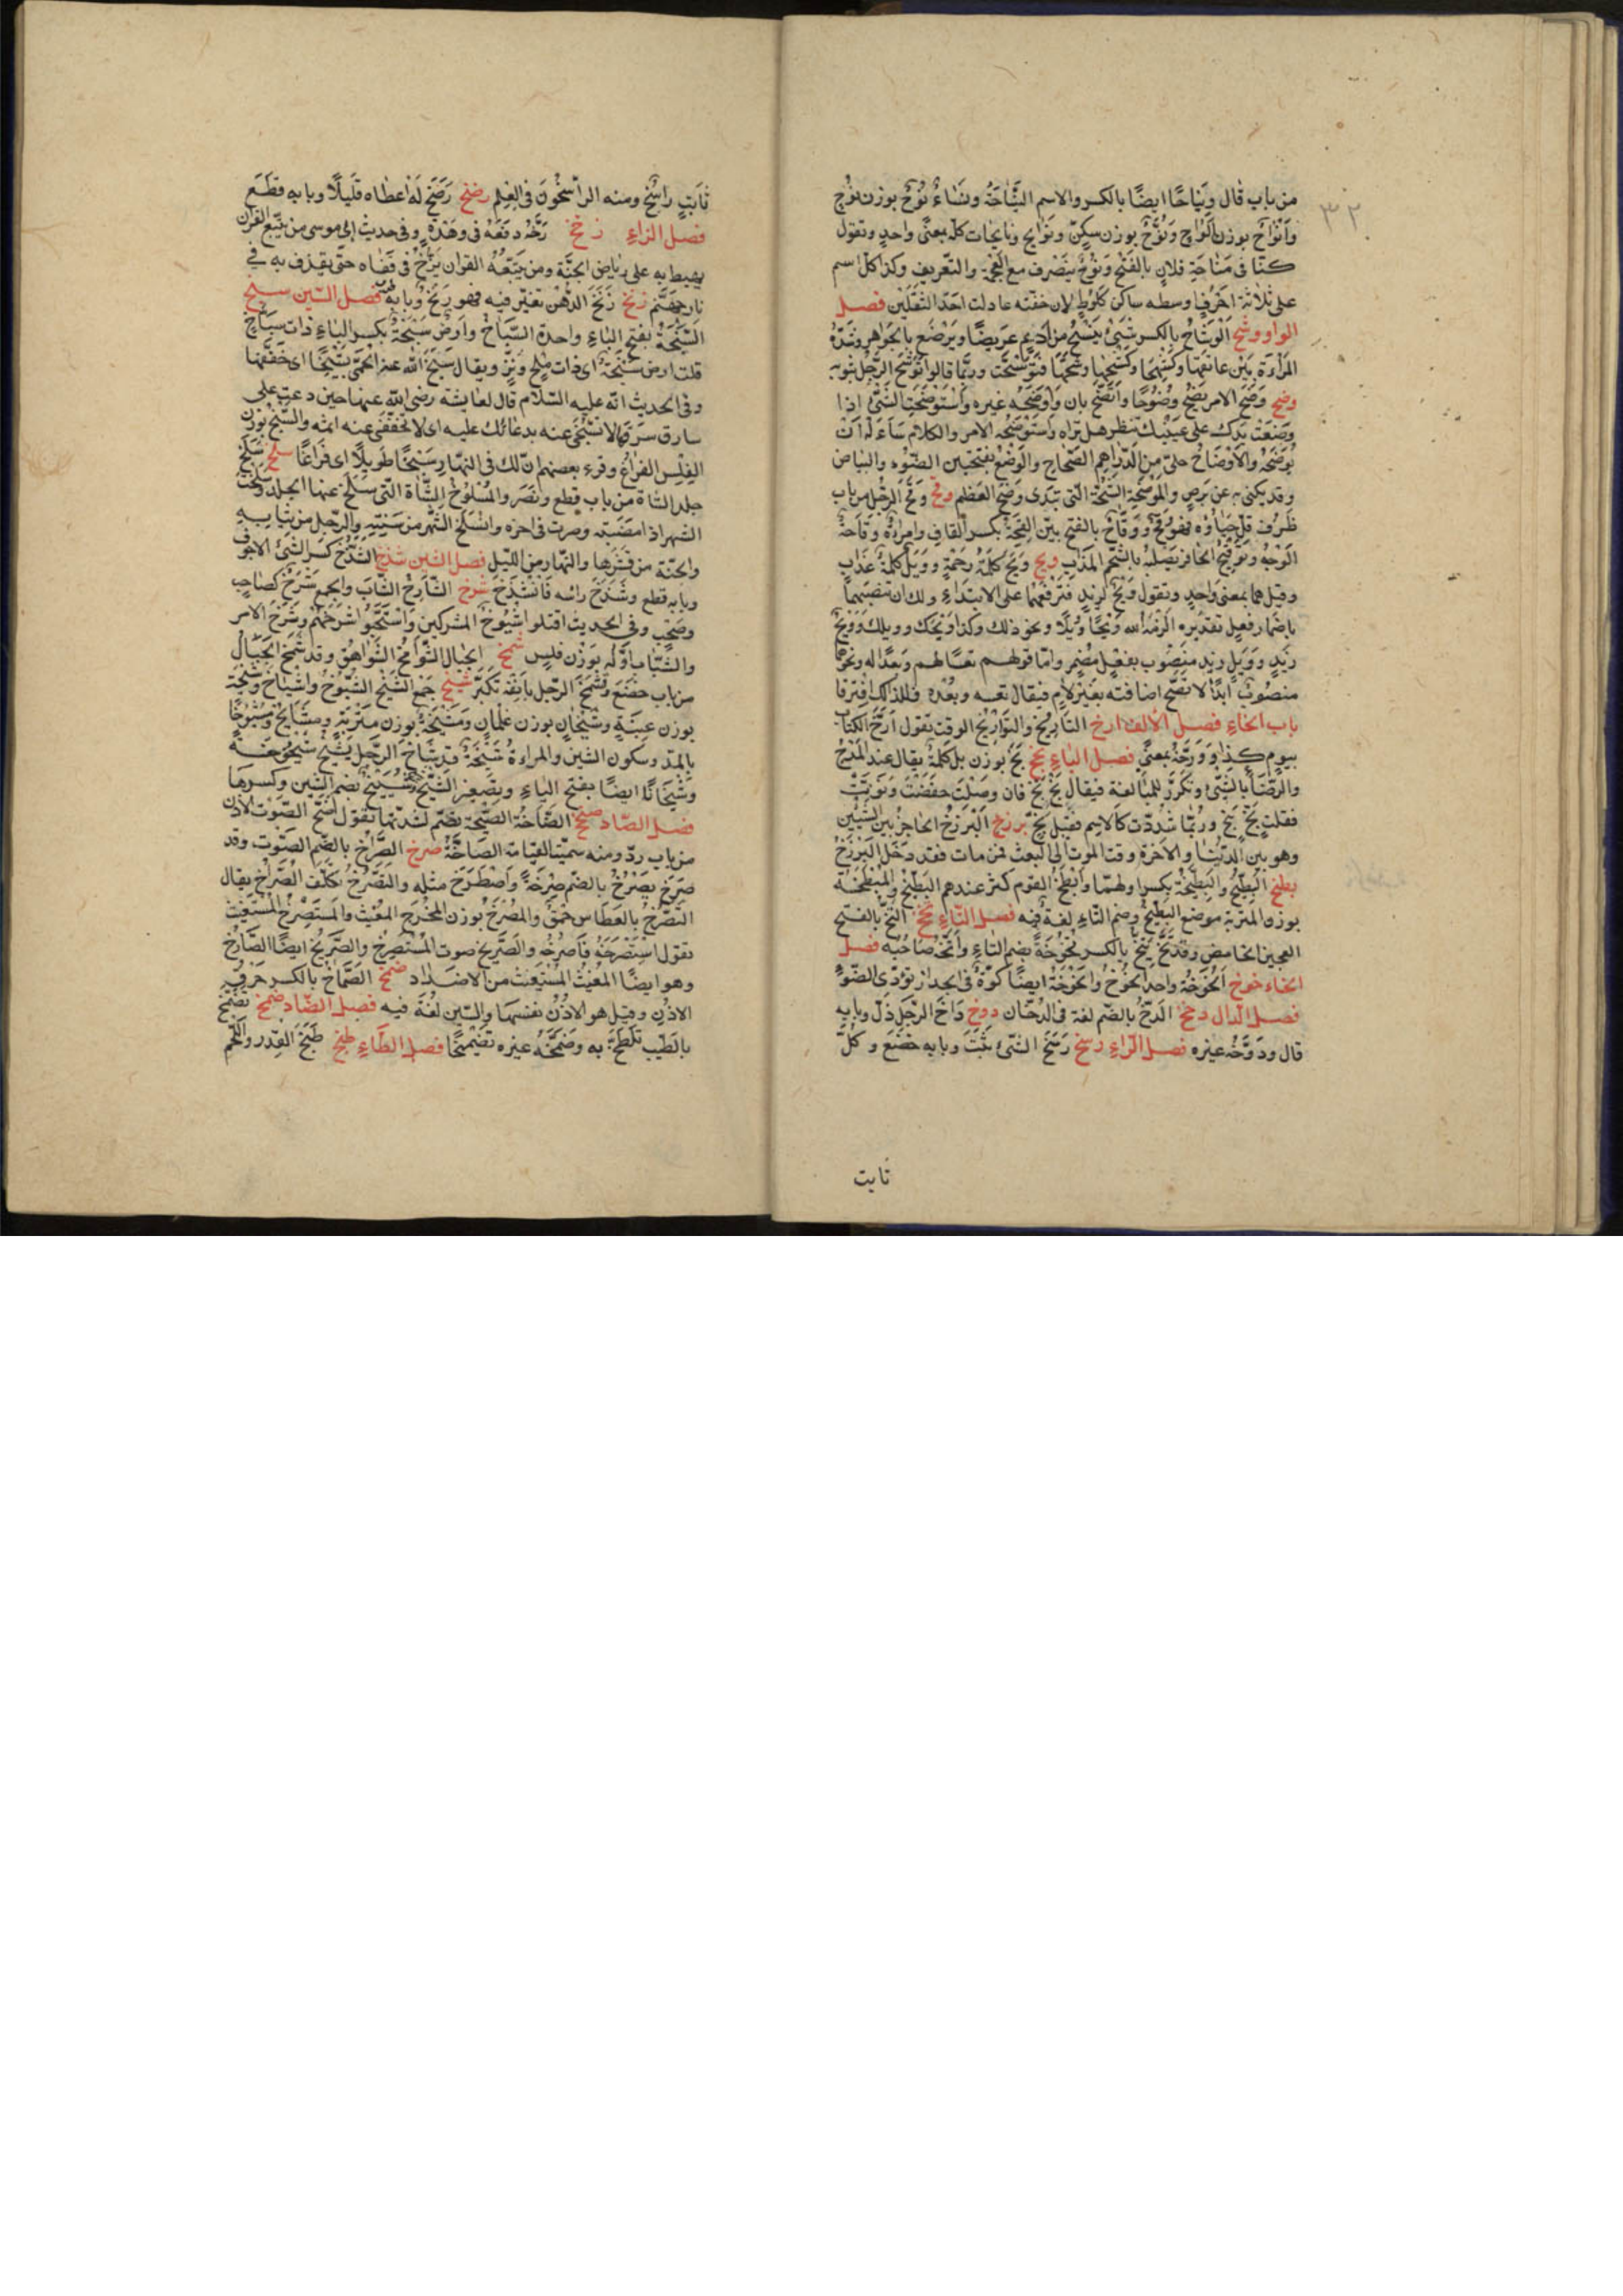 ٣٢
من باب قال ونياحًا ايضًا بالكسر والاسم النياحَةُ ونساءٌ نُوحٌ بوزن نُوحٍ
وأنواحٌ بوزن ألواح ونُوَّحٌ بوزن سكّر ونَوَايح ونايحات كله بمعنًى واحدٍ وتقول
كنّا فى مناحَة فلانٍ بالفتح ونوحٌ ينصرف مع العجمة والتعريف وكذا كل اسم
على ثلاثة احرفٍ اوسطه ساكن كلوطٍ لان خفته عادلت احد الثقلين فصل
الواو وشح الوشاح بالكسر شىءٌ ينسج من أديم عريضًا ويرصّع بالجواهر وتشدّه
المراءة بين عاتقيها وكشحيها وشحها فتوشّحت وربّما قالوا توشّح الرجل بثوبه
وضح وضح الامر يضح وضوحًا واتّضح بان وأوضحه غيره واستوضحت الشئ اذا
وضعت يدك على عينيك تنظر هل تراه واستوضحه الامر والكلام ساءله أن
يوضحه والأوضاح حلىٌ من الدراهم الصحاح والوضح بفتحتين الضوء والبياض
وقد يكنى به عن برصٍ والموضحة الشجّة التى تبدى وضح العظم وقح وقح الرجل من باب
ظرف قلّ حياؤه فهو وقحٌ ووقاحٌ بالفتح بيّن القحة بكسر القاف وامراءةٌ وقاحة
الوجه وتوقيح الحافر تصلبه بالشحم المذاب ويح ويح كلمة رحمةٍ وويل كلمة عذاب
وقيل هما بمعنى واحدٍ وتقول ويحٌ لزيدٍ فترفعهما على الابتداء ولك ان تنصبهما
باضمار فعلٍ تقديره الزمه الله ويحًا وويلًا ونحو ذلك وكذا ويحك وويلك وويح
زيدٍ وويل زيد منصوب بفعل مضمر وامّا قولهم تعسًا لهم وبعدًا له ونحوهما
منصوبٌ أبدًا لا تصح اضافته بغير لامٍ فيقال تعسه وبعده فلذلك افترقا
باب الخاء فصل الالف ارخ التأريخ والتواريخ الوقت تقول أرّخ الكتاب
بيوم كذا وورّخه بمعنى فصل الباء بخ بخ بوزن بل كلمةٌ يقال عند المدح
والرضا بالشئ وتكرّر للمبالغة فيقال بخ بخ فان وصلت خفضت ونوّنت
فقلت بخٍ بخٍ وربّما شدّدت كالاسم فقيل بخٍّ برزخ البرزخ الحاجز بين الشيئين
وهو بين الدنيا والاخرة وقت الموت الى البعث فمن مات فقد دخل البرزخ
بطخ البطيخ والبطيخة بكسر اولهما وأبطخ القوم كثر عندهم البطيخ والمبطخة
بوزن المتربة موضع البطيخ وضم الطاء لغة فيه فصل التاء تخخ التخّ بالفتح
العجين الحامض وقد تخّ يتخّ بالكسر تخوخةً بضم التاء وأتخّه صاحبه فصل
الخاء خوخ الخوخة واحد الخوخ والخوخة ايضًا كوّة فى الجدار تؤدى الضوء
فصل الدال دخخ الدخّ بالضم لغة فى الدخان دوخ داخ الرجل ذلّ وبابه
قال ودوّخه غيره فصل الراء رسخ رسخ الشئ ثبت وبابه خضع وكل
ثابت
ثابتٍ راسخٌ ومنه الراسخون فى العلم رضخ رضخ له اعطاه قليلًا وبابه قطع
فصل الزاء زخخ زخّه دفعه فى وهدةٍ وفى حديث ابى موسى من يتّبع القرآن
يهبط به على رياض الجنّة ومن يتّبعه القرآن يزخّ فى قفاه حتى يقذف به فى
نار جهنم زنخ زنخ الدهن تغيّر فيه فهو زنخٌ وبابه طرب فصل السّين سبخ
السبخة بفتح الباء واحدة السباخ وأرضٌ سبخةٌ بكسر الباء ذات سباخٍ
قلت ارض سبخة اى ذات ملح ونزّ ويقال سبّخ الله عنه الحمّى تسبيخًا اى خففها
وفى الحديث انه عليه السلام قال لعايشة رضى الله عنها حين دعت على
سارق سرقها لا تسبّخى عنه بدعائك عليه اى لا تخففى عنه اثمه والسبخ بوزن
الفلس الفراغ وقرء بعضهم انّ لك فى النهار سبخًا طويلًا اى فراغًا سلخ سلخ
جلد الشاة من باب قطع ونصر والمسلوخ الشاة التى سلخ عنها الجلد وسلخت
الشهر اذا امضيته وصرت فى اخره وانسلخ الشهر من سنته والرجل من ثيابه
والحيّة من قشرها والنهار من الليل فصل الشين شدخ الشدخ كسر الشئ الاجوف
وبابه قطع وشدّخ رأسه فانشدخ شرخ الشارخ الشاب والجمع شرخ كصاحب
وصحب وفى الحديث اقتلوا شيوخ المشركين واستحيوا شرخهم وشرخ الامر
والشباب اوّله بوزن فلس شمخ الجبال الشوامخ الشواهق وقد شمخ الجبال
من باب خضع وشمخ الرجل بانفه تكبّر شيخ جمع الشيخ الشيوخ واشياخ وشيخة
بوزن عنبةٍ وشيخان بوزن غلمان ومشيخة بوزن متربة ومشايخ ومشيوخا
بالمدّ وسكون الشين والمراءة شيخةٌ وقد شاخ الرجل يشيخ شيخوخة
وشيخانًا ايضًا بفتح الياء وتصغير الشيخ شييخ بضم الشين وكسرها
فصل الصّاد صخخ الصاخّة الصيحة تصمّ لشدتها تقول أصخّ الصوت الاذن
من باب ردّ ومنه سميت القيامة الصاخّة صرخ الصراخ بالضم الصوت وقد
صرخ يصرخ بالضم صرخةً واصطرخ مثله والتصرّخ تكلّف الصراخ يقال
التصرّخ بالعطاس حمقٌ والمصرخ بوزن المخرج المغيث والمستصرخ المستغيث
تقول استصرخه فأصرخه والصريخ صوت المستصرخ والصريخ ايضًا الصارخ
وهو ايضًا المغيث المستغيث من الاضداد صمخ الصماخ بالكسر خرق
الاذن وقيل هو الاذن نفسها والسّين لغة فيه فصل الضّاد ضمخ تضمّخ
بالطيب تلطّخ به وضمّخه غيره تضميخًا فصل الطّاء طبخ طبخ القدر واللحم